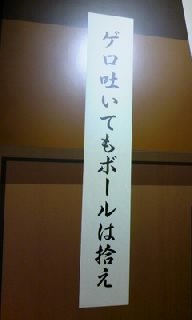 ゲロ吐いてもボールは拾え